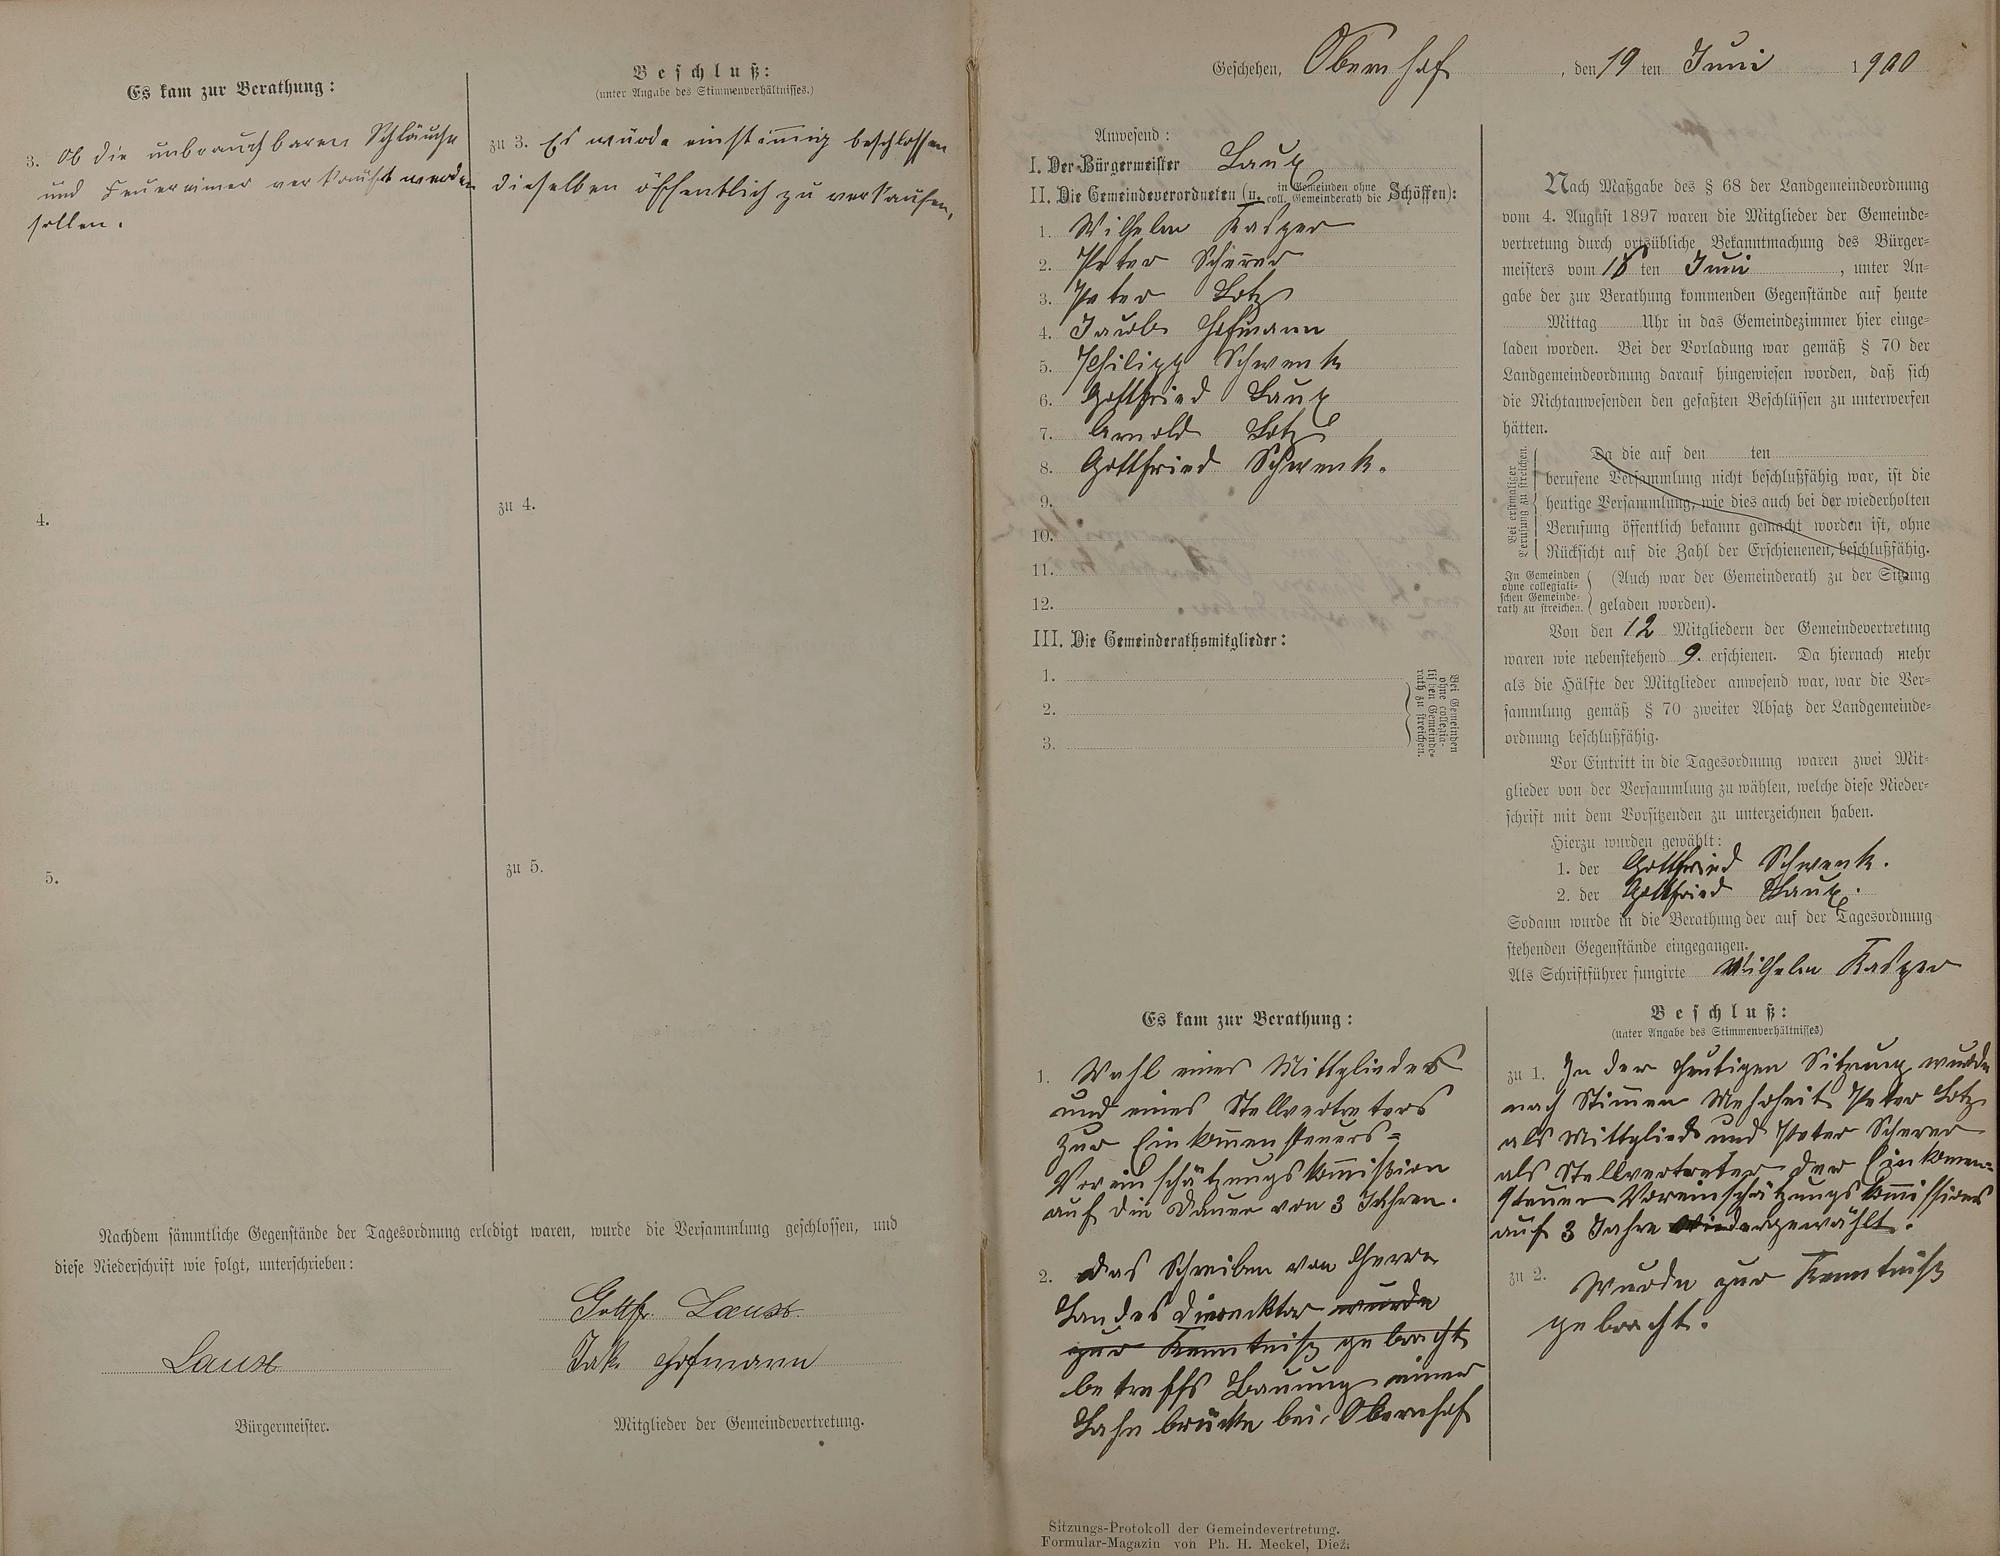 Es kam zur Berathung:
3. Ob die unbrauchbaren Schläuche
und Feuereimer verkauft werden
sollen.
4.
5.
Beschluß:
(unter Angabe des Stimmenverhältnisses.)
zu 3. Es wurde einstimmig beschlossen
dieselben öffentlich zu verkaufen,
zu 4.
zu 5.
Nachdem sämmtliche Gegenstände der Tagesordnung erledigt waren, wurde die Versammlung geschlossen, und
diese Niederschrift wie folgt, unterschrieben:
Gottfr. Laux
Laux
Jak. Hofmann
Bürgermeister.
Mitglieder der Gemeindevertretung.
Geschehen, Obernhof, den 19 ten Juni 1900
Anwesend:
I. Der Bürgermeister Laux
II. Die Gemeindeverordneten (u. in Gemeinden ohne coll. Gemeinderath die Schöffen):
1. Wilhelm Kasper
2. Peter Scherer
3. Peter Lotz
4. Jacob Hofmann
5. Philipp Schwenk
6. Gottfried Laux
7. Arnold Lotz
8. Gottfried Schwenk.
9.
10.
11.
12.
III. Die Gemeinderathsmitglieder:
1.
2.
3.
Bei Gemeinden
ohne collegia-
lischen Gemeinde-
rath zu streichen.
Nach Maßgabe des § 68 der Landgemeindeordnung
vom 4. August 1897 waren die Mitglieder der Gemeinde-
vertretung durch ortsübliche Bekanntmachung des Bürger-
meisters vom 16 ten Juni, unter An-
gabe der zur Berathung kommenden Gegenstände auf heute
Mittag Uhr in das Gemeindezimmer hier einge-
laden worden. Bei der Vorladung war gemäß § 70 der
Landgemeindeordnung darauf hingewiesen worden, daß sich
die Nichtanwesenden den gefaßten Beschlüssen zu unterwerfen
hätten.
Bei erstmaliger
Berufung zu streichen.
Da die auf den ten
berufene Versammlung nicht beschlußfähig war, ist die
heutige Versammlung, wie dies auch bei der wiederholten
Berufung öffentlich bekannt gemacht worden ist, ohne
Rücksicht auf die Zahl der Erschienenen, beschlußfähig.
In Gemeinden
ohne collegiali-
schen Gemeinde-
rath zu streichen.
(Auch war der Gemeinderath zu der Sitzung
geladen worden).
Von den 12 Mitgliedern der Gemeindevertretung
waren wie nebenstehend 9. erschienen. Da hiernach mehr
als die Hälfte der Mitglieder anwesend war, war die Ver-
sammlung gemäß § 70 zweiter Absatz der Landgemeinde-
ordnung beschlußfähig.
Vor Eintritt in die Tagesordnung waren zwei Mit-
glieder von der Versammlung zu wählen, welche diese Nieder-
schrift mit dem Vorsitzenden zu unterzeichnen haben.
Hierzu wurden gewählt:
1. der Gottfried Schwenk.
2. der Gottfried Laux.
Sodann wurde in die Berathung der auf der Tagesordnung
stehenden Gegenstände eingegangen.
Als Schriftführer fungirte Wilhelm Kasper
Es kam zur Berathung:
1. Wahl eines Mittgliedes
und eines Stellvertreters
zur Einkommensteuers=
Voreinschätzungskommißion
auf die Dauer von 3 Jahren.
2. Das Schreiben von Herrn
Landes Direcktor wurde
zur Kenntniß gebracht
betreffs Bauung einer
Lahnbrücke bei Obernhof
Beschluß:
(unter Angabe des Stimmenverhältnisses)
zu 1. In der heutigen Sitzung wurde
nach Stimmen Mehrheit Peter Lotz
als Mittglied und Peter Scherer
als Stellvertreter der Einkommen=
steuer Voreinschätzungskommissions
auf 3 Jahre wiedergewählt.
zu 2. Wurde zur Kenntniß
gebracht.
Sitzungs-Protokoll der Gemeindevertretung.
Formular-Magazin von Ph. H. Meckel, Diez.